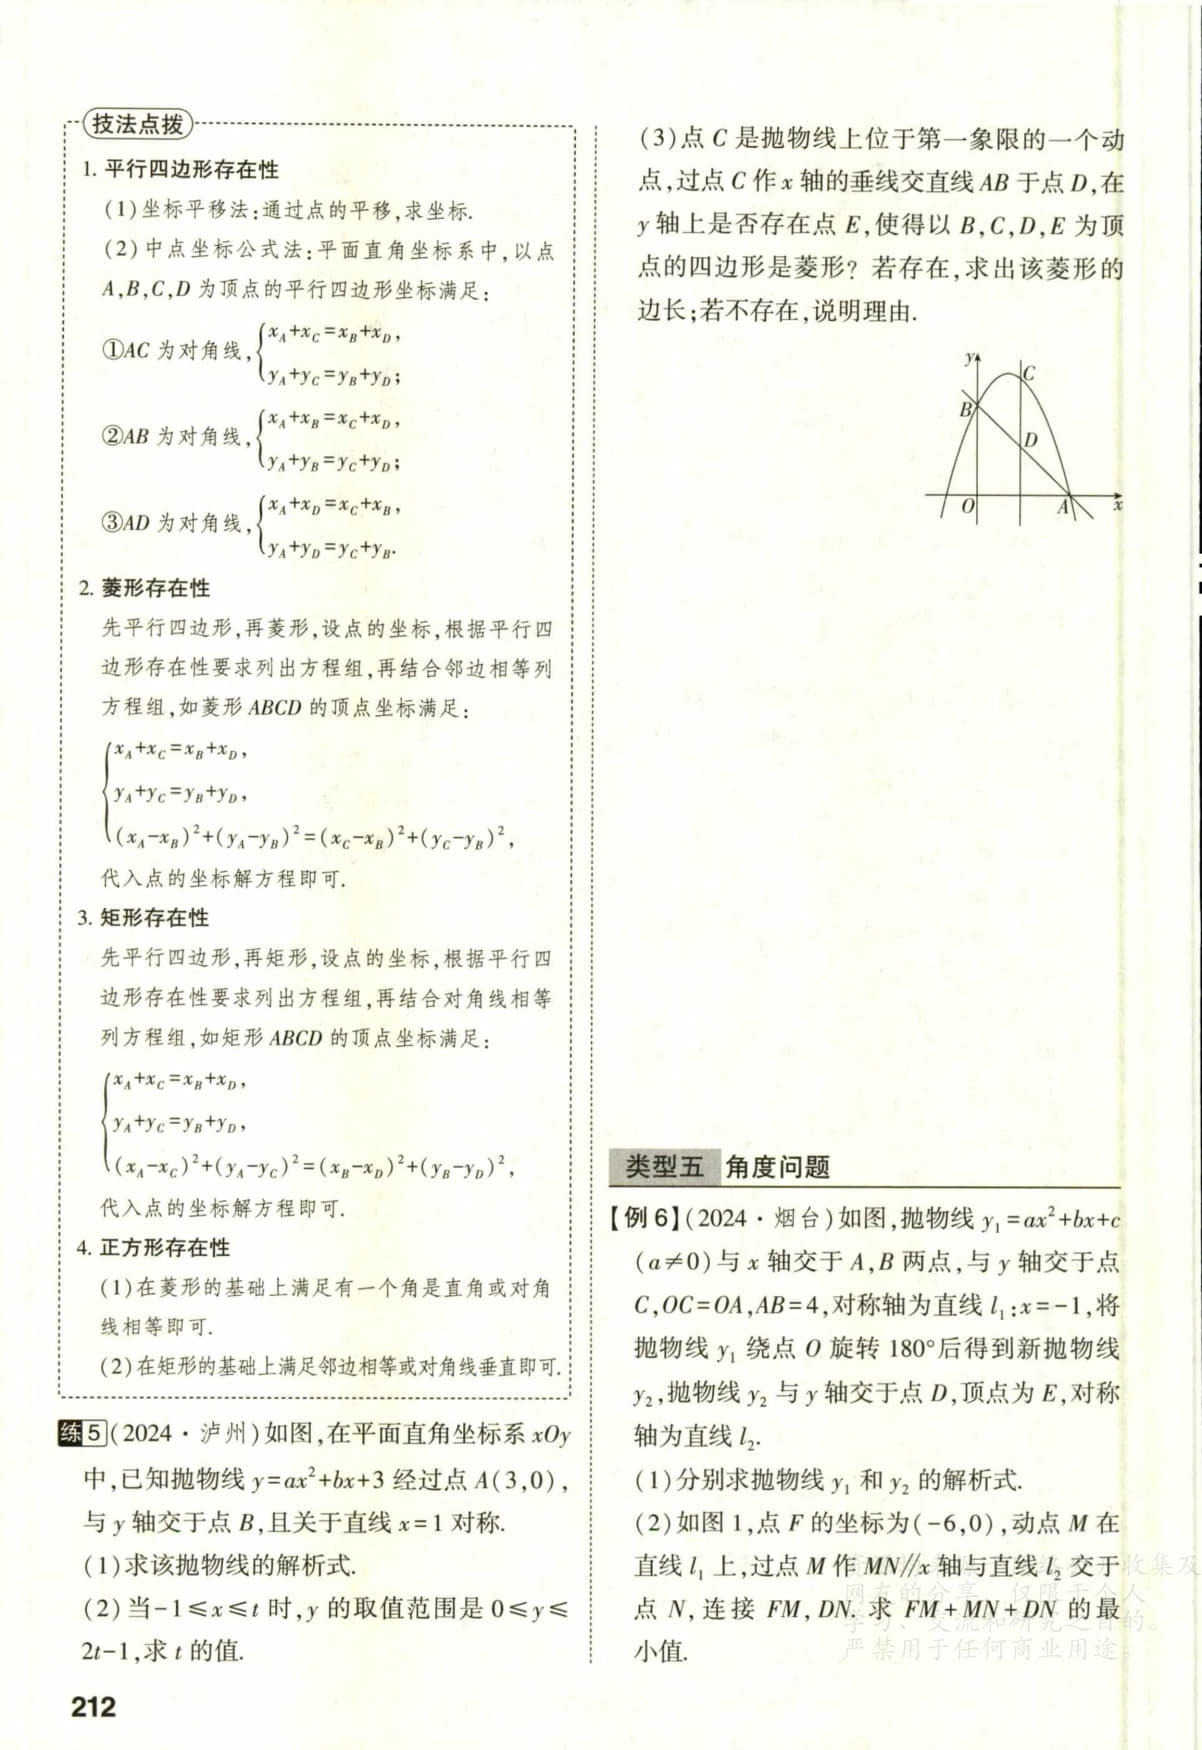 技法点拨
1. 平行四边形存在性
(1)坐标平移法:通过点的平移,求坐标.
(2)中点坐标公式法:平面直角坐标系中,以点
A,B,C,D 为顶点的平行四边形坐标满足:
①AC 为对角线,{x_A+x_C=x_B+x_D,
y_A+y_C=y_B+y_D;
②AB 为对角线,{x_A+x_B=x_C+x_D,
y_A+y_B=y_C+y_D;
③AD 为对角线,{x_A+x_D=x_C+x_B,
y_A+y_D=y_C+y_B.
2. 菱形存在性
先平行四边形,再菱形,设点的坐标,根据平行四
边形存在性要求列出方程组,再结合邻边相等列
方程组,如菱形 ABCD 的顶点坐标满足:
{x_A+x_C=x_B+x_D,
y_A+y_C=y_B+y_D,
(x_A-x_B)²+(y_A-y_B)²=(x_C-x_B)²+(y_C-y_B)²,
代入点的坐标解方程即可.
3. 矩形存在性
先平行四边形,再矩形,设点的坐标,根据平行四
边形存在性要求列出方程组,再结合对角线相等
列方程组,如矩形 ABCD 的顶点坐标满足:
{x_A+x_C=x_B+x_D,
y_A+y_C=y_B+y_D,
(x_A-x_C)²+(y_A-y_C)²=(x_B-x_D)²+(y_B-y_D)²,
代入点的坐标解方程即可.
4. 正方形存在性
(1)在菱形的基础上满足有一个角是直角或对角
线相等即可.
(2)在矩形的基础上满足邻边相等或对角线垂直即可.
练5(2024·泸州)如图,在平面直角坐标系 xOy
中,已知抛物线 y=ax²+bx+3 经过点 A(3,0),
与 y 轴交于点 B,且关于直线 x=1 对称.
(1)求该抛物线的解析式.
(2)当-1≤x≤t 时,y 的取值范围是 0≤y≤
2t-1,求 t 的值.
212
(3)点 C 是抛物线上位于第一象限的一个动
点,过点 C 作 x 轴的垂线交直线 AB 于点 D,在
y 轴上是否存在点 E,使得以 B,C,D,E 为顶
点的四边形是菱形? 若存在,求出该菱形的
边长;若不存在,说明理由.
y
C
B
D
O
A
x
类型五 角度问题
【例 6】(2024·烟台)如图,抛物线 y₁=ax²+bx+c
(a≠0)与 x 轴交于 A,B 两点,与 y 轴交于点
C,OC=OA,AB=4,对称轴为直线 l₁:x=-1,将
抛物线 y₁ 绕点 O 旋转 180°后得到新抛物线
y₂,抛物线 y₂ 与 y 轴交于点 D,顶点为 E,对称
轴为直线 l₂.
(1)分别求抛物线 y₁ 和 y₂ 的解析式.
(2)如图 1,点 F 的坐标为(-6,0),动点 M 在
直线 l₁ 上,过点 M 作 MN∥x 轴与直线 l₂ 交于
点 N,连接 FM,DN. 求 FM+MN+DN 的最
小值.
收集及
网友的分享,仅限于个人
学习、交流和研究之目的。
严禁用于任何商业用途。